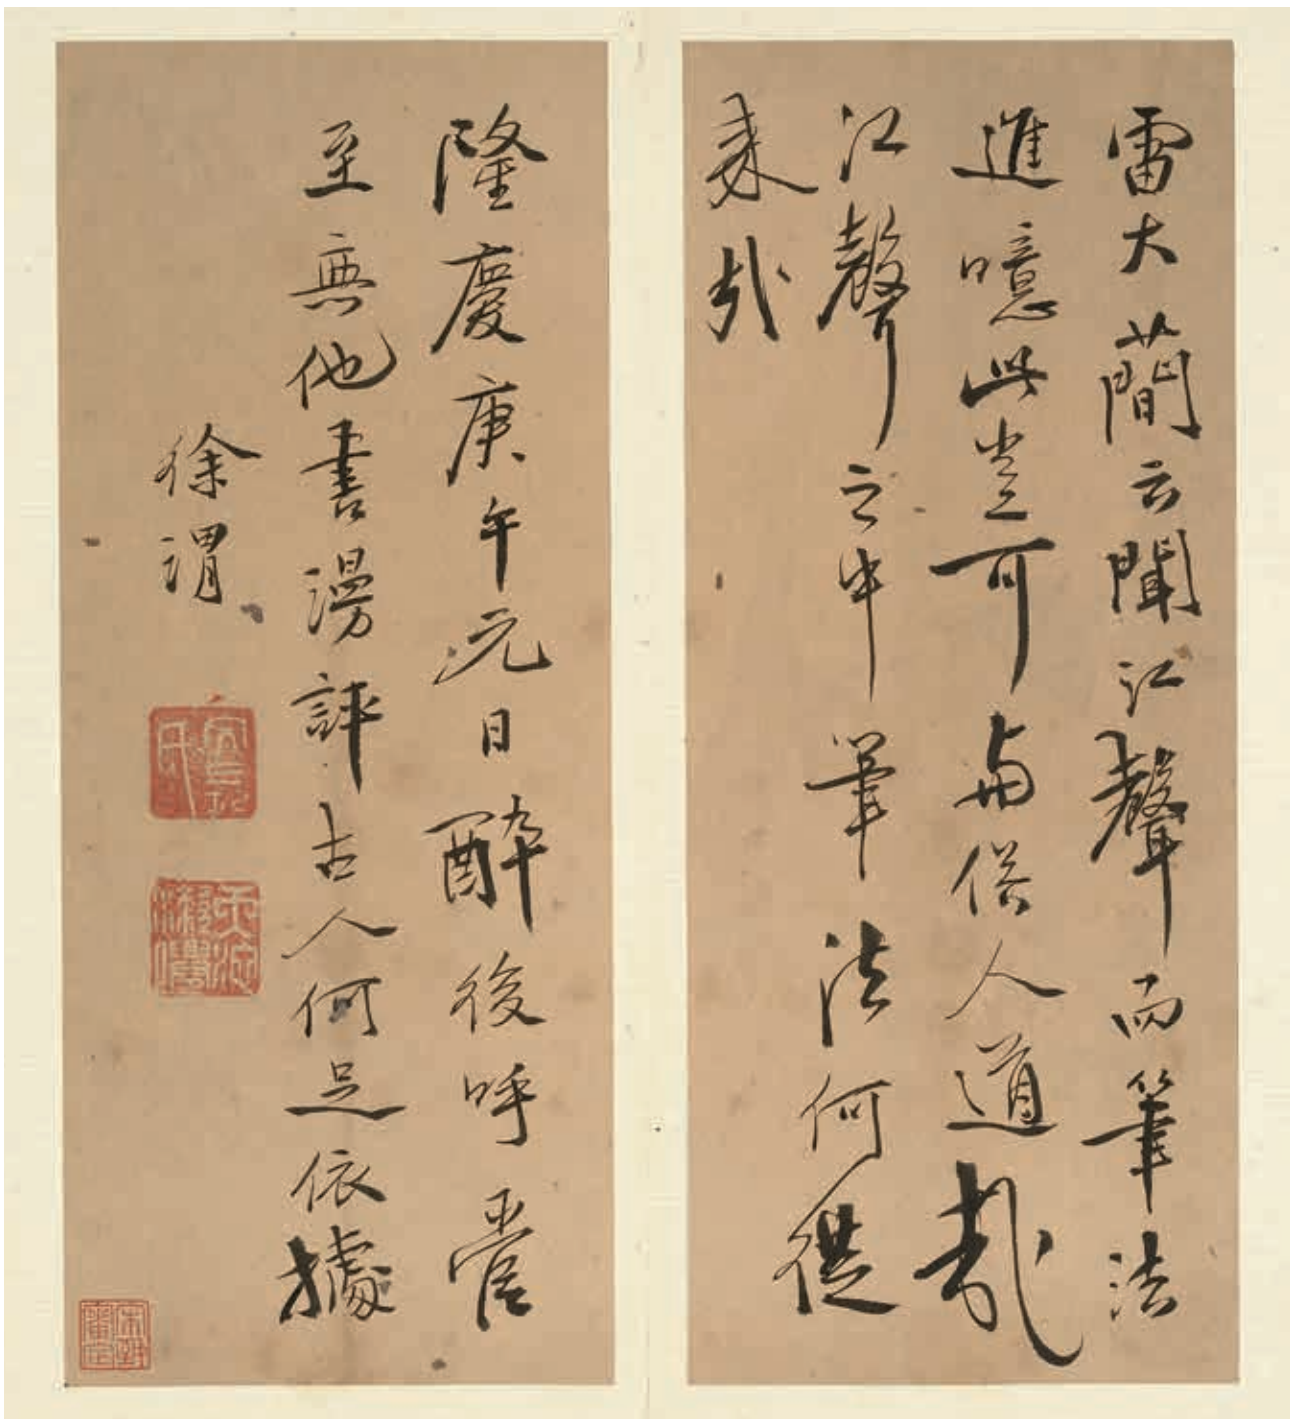 雷大蕳云聞江聲而筆法
進噫此豈可與俗人道哉
江聲之中筆法何從
來哉
隆慶庚午元日醉後呼管
至無他書漫評古人何足依據
徐渭